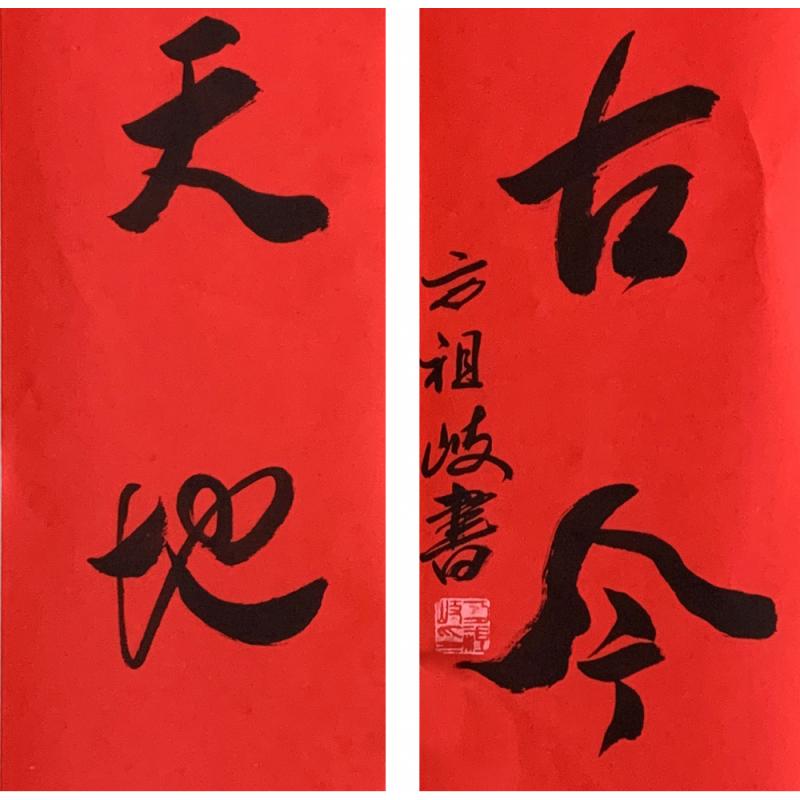 古今
天地
方祖岐書